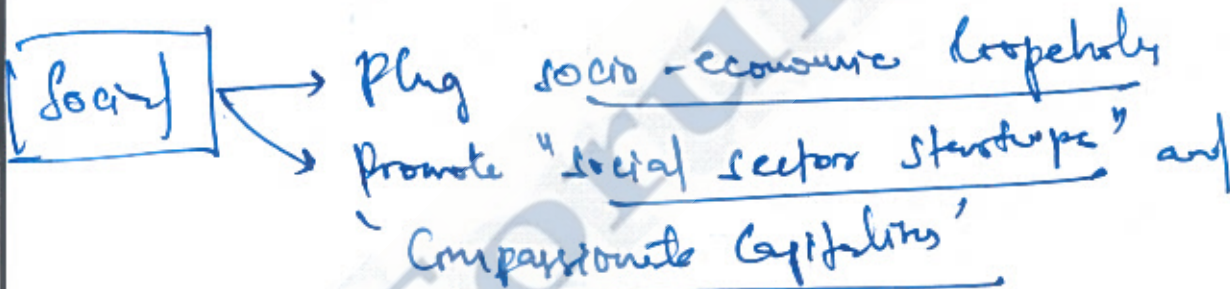 Social → Plug socio-economic loopholes
→ Promote "social sector startups" and
'Compassionate Capitalism'